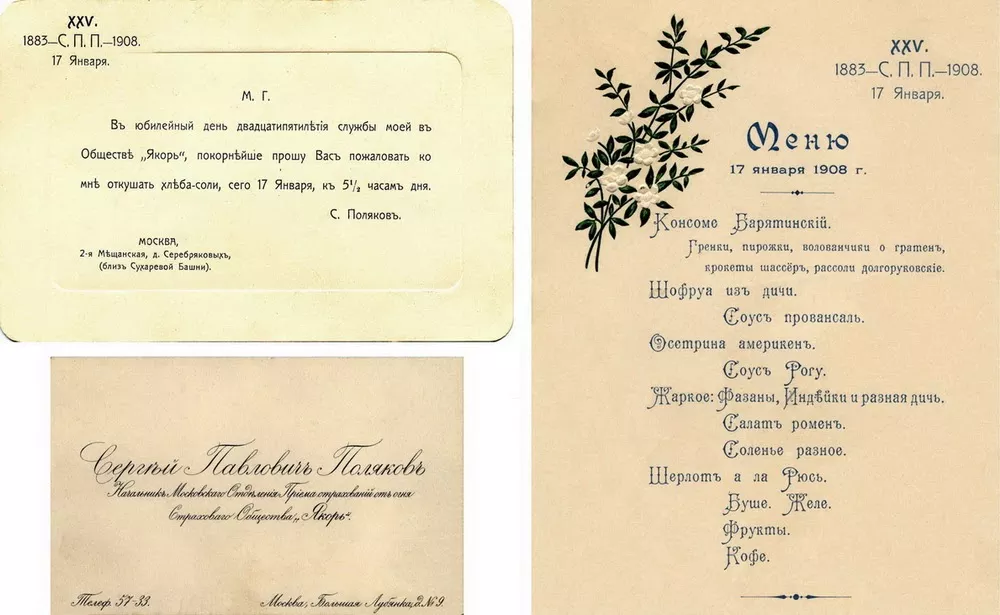 XXV.
1883—С. П. П.—1908.
17 Января.
М. Г.
Въ юбилейный день двадцатипятилѣтія службы моей въ
Обществѣ „Якорь“, покорнѣйше прошу Васъ пожаловать ко
мнѣ откушать хлѣба-соли, сего 17 Января, къ 5½ часамъ дня.
С. Поляковъ.
МОСКВА,
2-я Мѣщанская, д. Серебряковыхъ,
(близъ Сухаревой Башни).
Сергѣй Павловичъ Поляковъ
Начальникъ Московскаго Отдѣленія Пріема страхованій отъ огня
Страховаго Общества „Якорь“.
Телеф. 57-33.
Москва, Большая Лубянка, д. № 9.
XXV.
1883—С. П. П.—1908.
17 Января.
Меню
17 января 1908 г.
Консоме Барятинскій.
Гренки, пирожки, волованчики о гратенъ,
крокеты шассёръ, рассоли долгоруковскіе.
Шофруа изъ дичи.
Соусъ провансаль.
Осетрина америкенъ.
Соусъ Рогу.
Жаркое: Фазаны, Индѣйки и разная дичь.
Салатъ роменъ.
Соленье разное.
Шерлотъ а ла Рюсь.
Буше. Желе.
Фрукты.
Кофе.